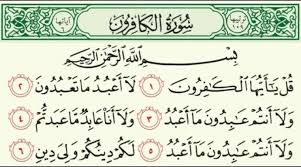 سُورَةُ الْكَافِرُونَ
بِسْمِ اللَّهِ الرَّحْمَٰنِ الرَّحِيمِ
قُلْ يَا أَيُّهَا الْكَافِرُونَ ١ لَا أَعْبُدُ مَا تَعْبُدُونَ ٢
وَلَا أَنْتُمْ عَابِدُونَ مَا أَعْبُدُ ٣ وَلَا أَنَا عَابِدٌ مَا عَبَدْتُمْ ٤
وَلَا أَنْتُمْ عَابِدُونَ مَا أَعْبُدُ ٥ لَكُمْ دِينُكُمْ وَلِيَ دِينِ ٦